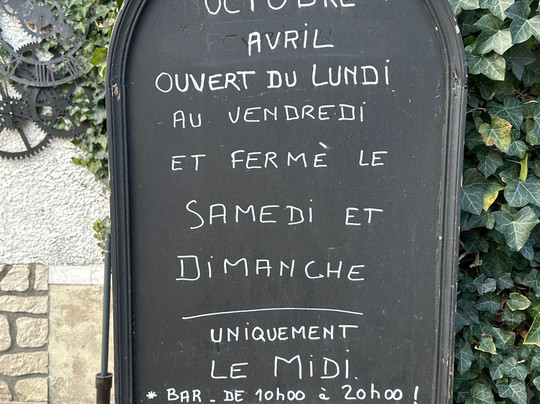 OCTOBRE
AVRIL
OUVERT DU LUNDI
AU VENDREDI
ET FERMÈ LE
SAMEDI ET
DIMANCHE
UNIQUEMENT
LE MIDI.
* BAR - DE 10h00 à 20h00 !